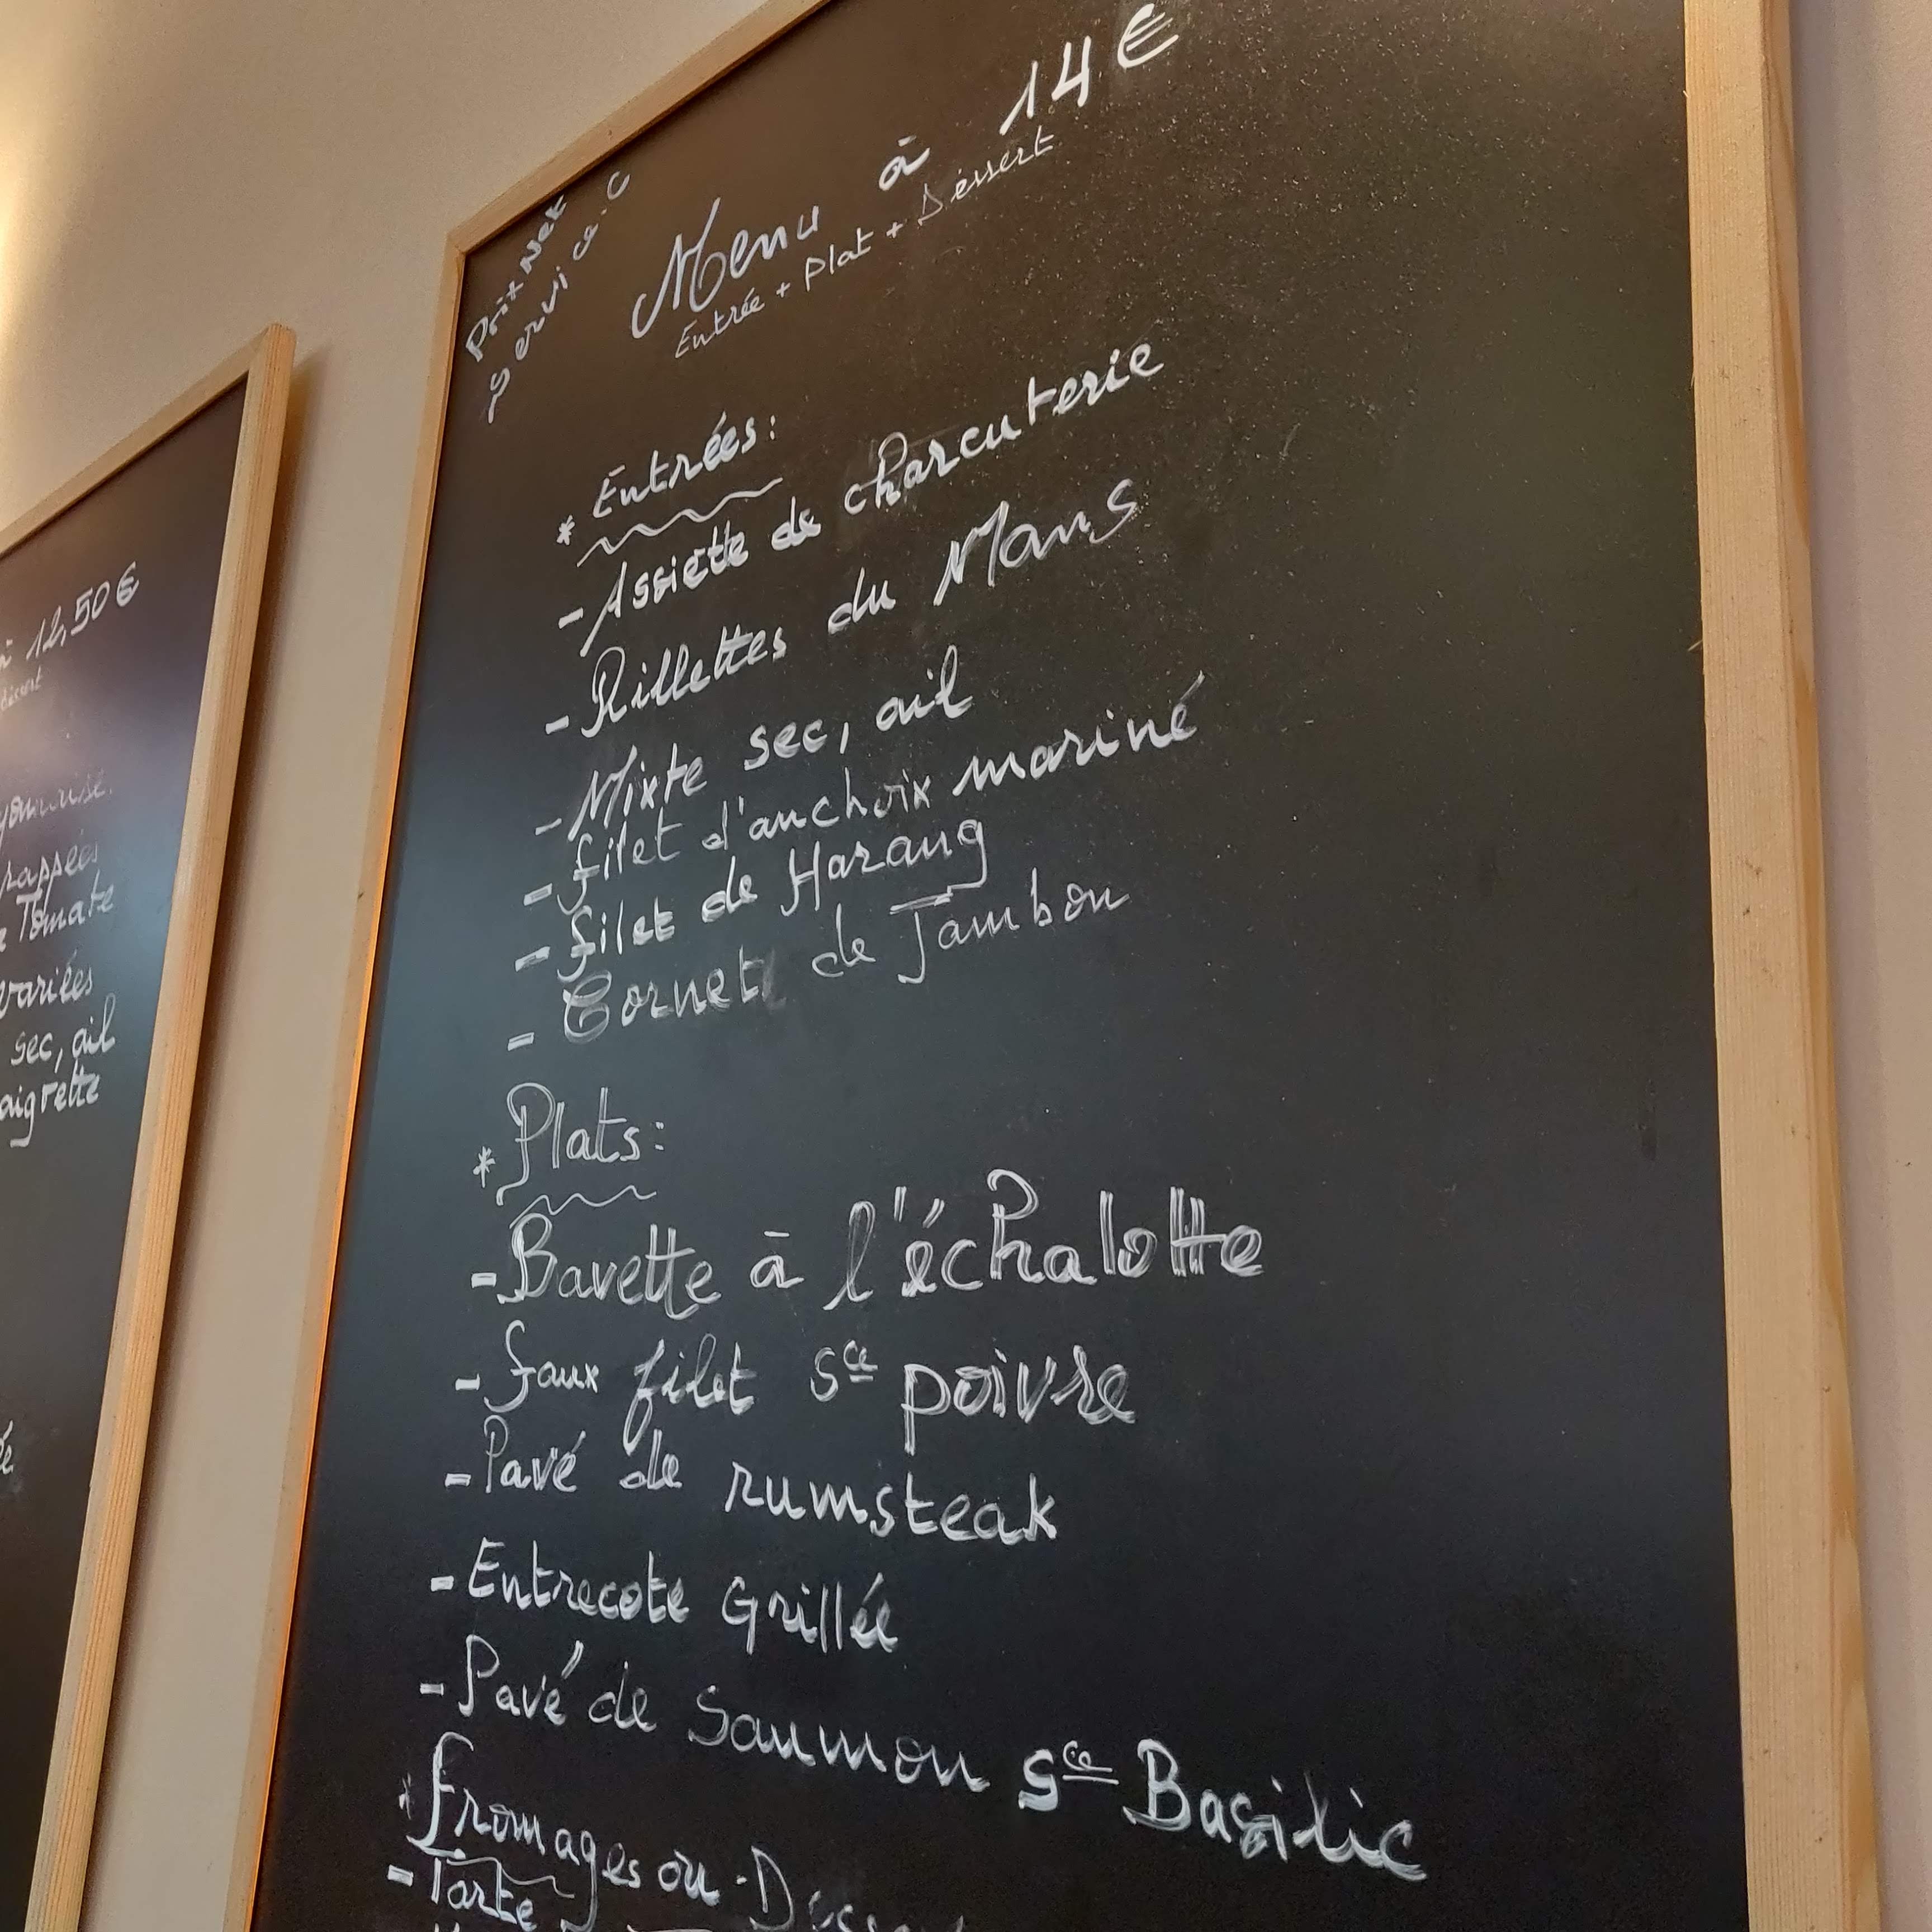 à 12,50€
sec, ail
Tomate
variées
Prix Net
service.C
Menu à 14€
Entrée + Plat + Déssert
* Entrées:
- Assiette de charcuterie
- Rillettes du Mans
- Mixte sec, ail
- filet d'anchoix mariné
- filet de Harang
- Cornet de Jambon
* Plats:
- Bavette à l'échalotte
- faux filet sce poivre
- Pavé de rumsteak
- Entrecote Grillée
- Pavé de Saumon sce Basilic
* fromages ou
- Tarte